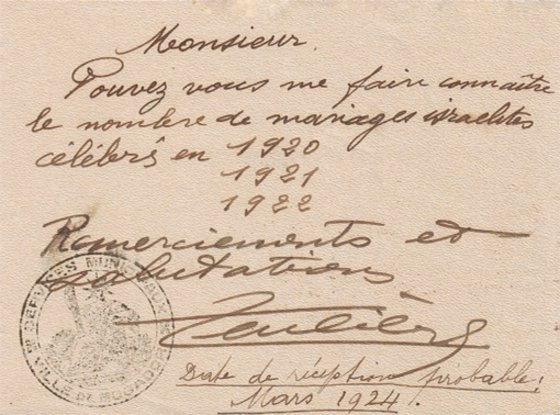 Monsieur.
Pouvez vous me faire connaître
le nombre de mariages israelites
célébrés en 1920
1921
1922
Remerciements et
salutations
SERVICES MUNICIPAUX
VILLE DE MOGADOR
Date de réception probable:
Mars 1924.